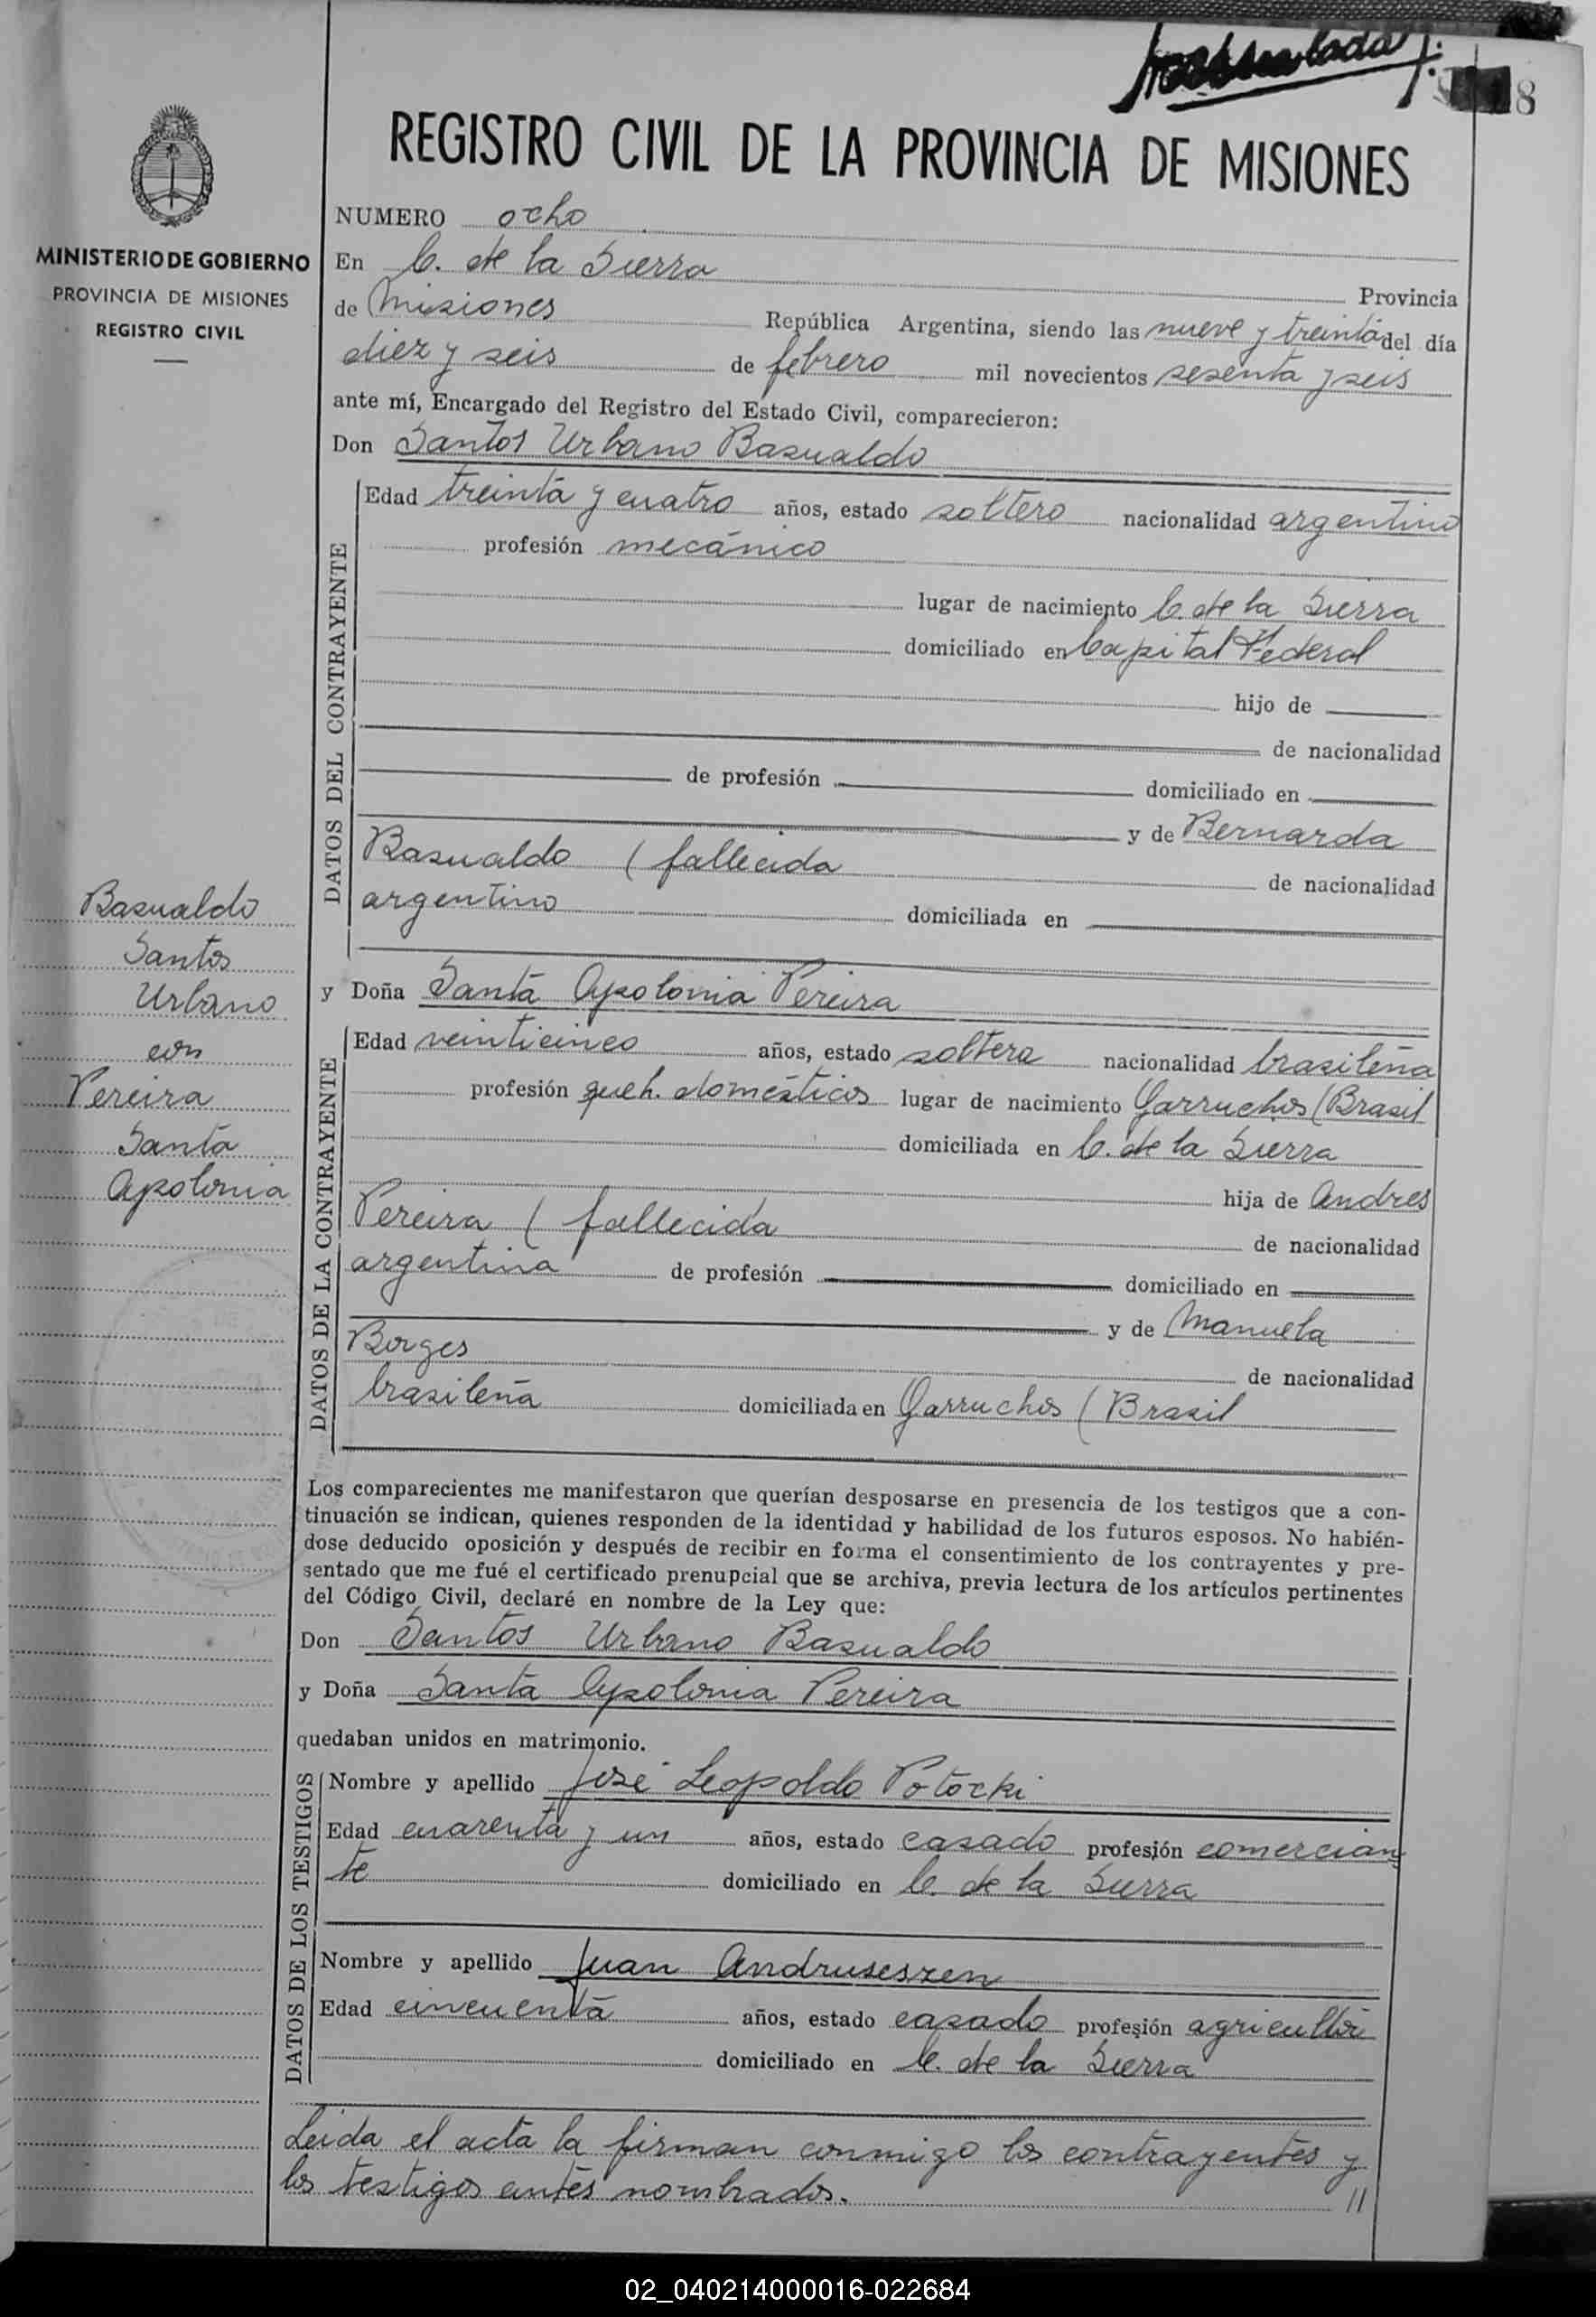 8
REGISTRO CIVIL DE LA PROVINCIA DE MISIONES
MINISTERIO DE GOBIERNO
PROVINCIA DE MISIONES
REGISTRO CIVIL
NUMERO ocho
En C. de la Sierra Provincia
de Misiones República Argentina, siendo las nueve y treinta del día
diez y seis de febrero mil novecientos sesenta y seis
ante mí, Encargado del Registro del Estado Civil, comparecieron:
Don Santos Urbano Basualdo
DATOS DEL CONTRAYENTE
Edad treinta y cuatro años, estado soltero nacionalidad argentino
profesión mecánico
lugar de nacimiento C. de la Sierra
domiciliado en Capital Federal
hijo de
de nacionalidad
de profesión domiciliado en
y de Bernarda
Basualdo ( fallecida
de nacionalidad
argentino domiciliada en
Basualdo
Santos
Urbano
con
Pereira
Santa
Apolonia
y Doña Santa Apolonia Pereira
DATOS DE LA CONTRAYENTE
Edad veinticinco años, estado soltera nacionalidad brasileña
profesión queh. domésticos lugar de nacimiento Garruchos (Brasil
domiciliada en C. de la Sierra
hija de Andres
Pereira ( fallecida
de nacionalidad
argentina de profesión domiciliado en
y de Manuela
Borges
de nacionalidad
brasileña domiciliada en Garruchos ( Brasil
Los comparecientes me manifestaron que querían desposarse en presencia de los testigos que a con-
tinuación se indican, quienes responden de la identidad y habilidad de los futuros esposos. No habién-
dose deducido oposición y después de recibir en forma el consentimiento de los contrayentes y pre-
sentado que me fué el certificado prenupcial que se archiva, previa lectura de los artículos pertinentes
del Código Civil, declaré en nombre de la Ley que:
Don Santos Urbano Basualdo
y Doña Santa Apolonia Pereira
quedaban unidos en matrimonio.
DATOS DE LOS TESTIGOS
Nombre y apellido José Leopoldo Potocki
Edad cuarenta y un años, estado casado profesión comercian
te domiciliado en C. de la Sierra
Nombre y apellido Juan Andruseszen
Edad cincuenta años, estado casado profesión agricultor
domiciliado en C. de la Sierra
Leida el acta la firman conmigo los contrayentes y
los testigos antes nombrados. //
02_040214000016-022684